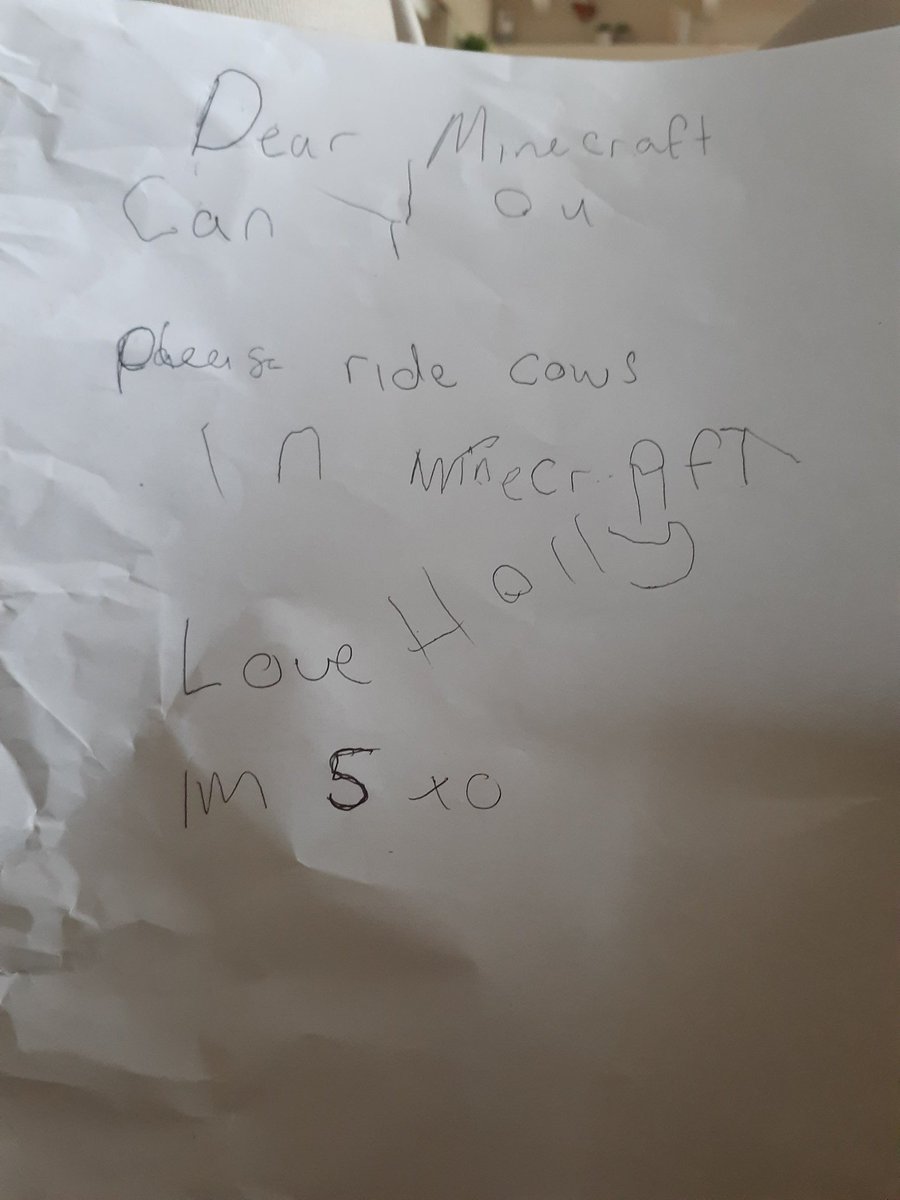 Dear Minecraft
Can You
please ride cows
In minecrAfT
Love Holly
Im 5 xo